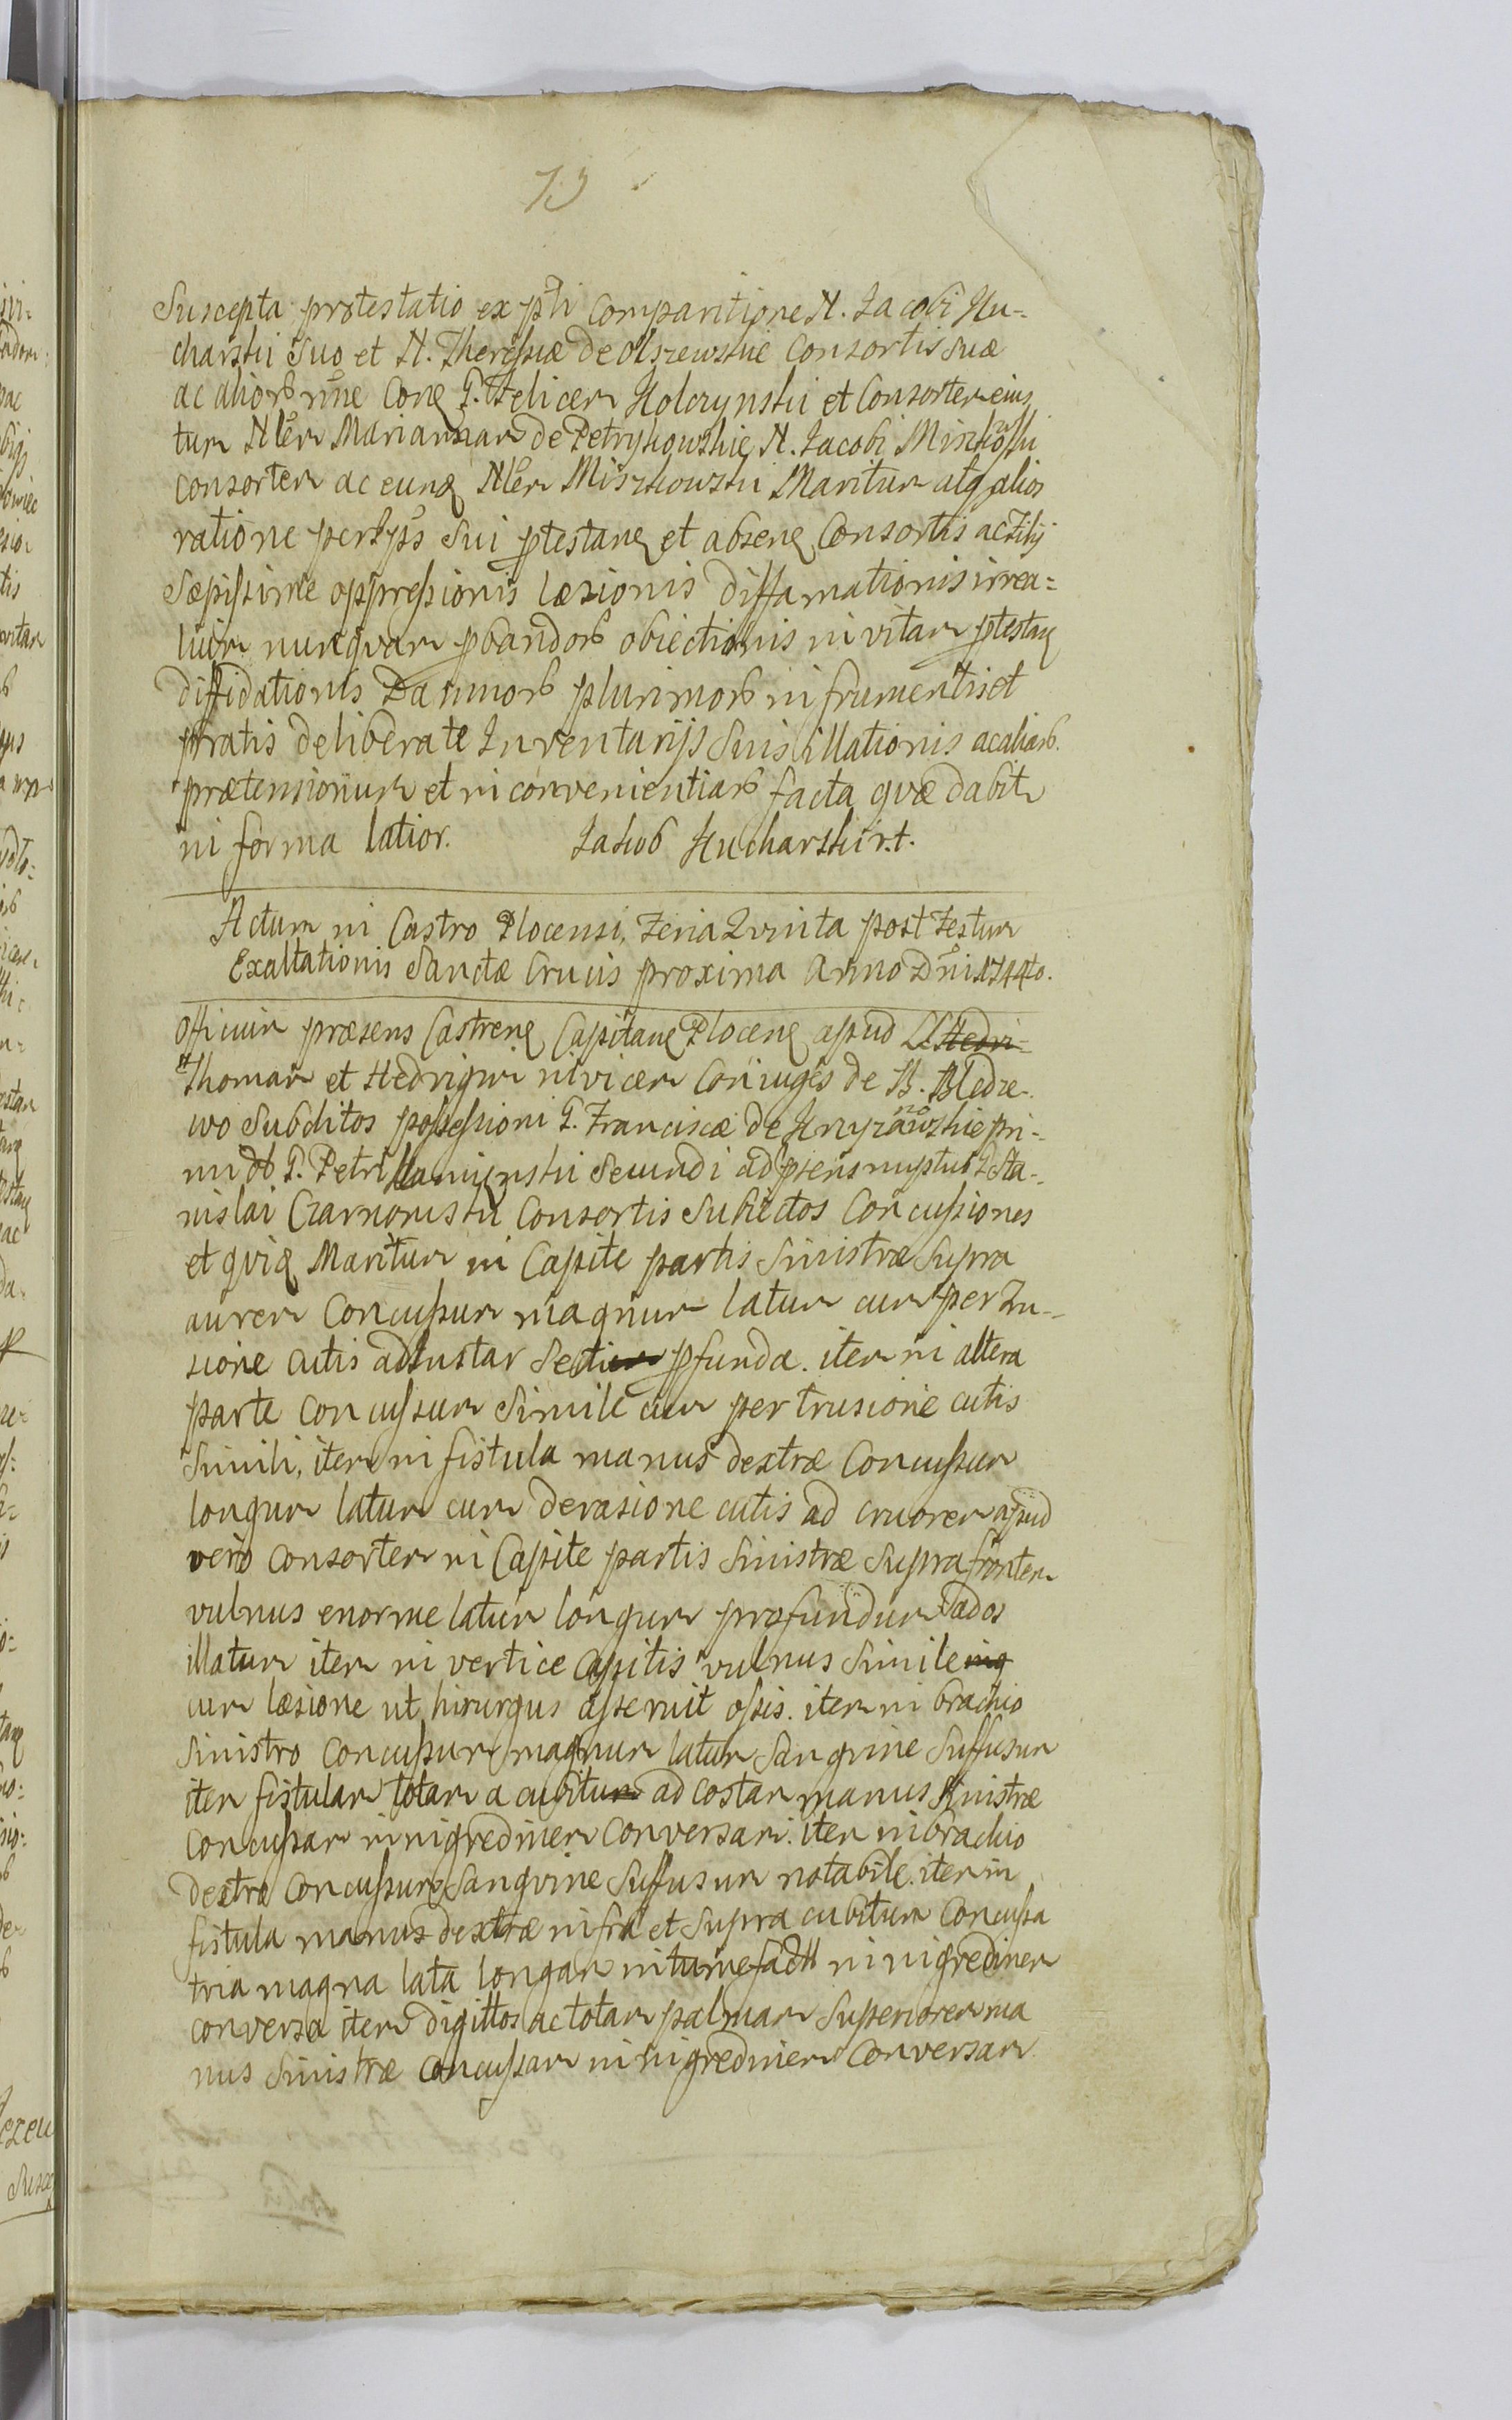 73
Suscepta protestatio ex pti Comparitione N. Jacobi Ku-
charski Suo et N. Theresiæ de Olszewskie Consortis Suæ
ac alior nne Cone G. Felicem Kolczynski et Consortem eius
tum Nlem Mariannam de Petrykowskie N. Jacobi Miszkowski
Consortem ac eunq Nlem Miszkowski Maritum atq alios
ratione ptestanq et absenq Consortis ac Filij
Sæpissime oppressionis læsionis diffamationis irrea-
lium nunqvam pbandor obiectionis in vitam ptestanq
diffidationis Damnor plurimor in frumentis et
pratis deliberate Inventarijs Suis illationis ac aliar
prætensionum et inconvenientiar facta qvæ dabitr
in forma latior. Jakob Kucharski r.t.
Actum in Castro Plocensi, Feria Qvinta post Festum
Exaltationis Sanctæ Crucis proxima Anno Dni 1744to.
Officium præsens Castrenq Capitanq Plocenq apud LL Hedvi-
Thomam et Hedvigim invicem Coniuges de B. Bledze-
wo Subditos possessioni G. Franciscæ de Kryzanowskie pri-
mi G. Petri Kamiynski Secundi ad psens nuptus G. Sta-
nislai Czarnomski Consortis Subiectos Concussiones
et qviq Maritum in Capite partis Sinistræ Supra
aurem Concussum magnum latum cum pertru-
sione cutis ad Instar Secti pfunda. item in altera
parte Concussum Simile cum pertrusione cutis
Simili, item in fistula manus dextræ Concussum
longum latum cum derasione cutis ad cruorem apud
vero Consortem in Capite partis Sinistræ Supra frontem
vulnus enorme latum longum profundum ad os
illatum item in vertice Capitis vulnus Simile
cum læsione ut hirurgus asseruit ossis. item in brachio
Sinistro Concussum magnum latum Sangvine Suffusum
item fistulam totam a cubitu ad costam manus Sinistræ
Concussam in nigredinem Conversam. item in brachio
dextro Concussum Sangvine Suffusum notabile. item in
fistula manus dextræ infra et Supra cubitum Concussa
tria magna lata longa intumefacta in nigredinem
conversa item digittos ac totam palmam Superiorem ma
nus Sinistræ Concussam in nigredinem Conversam